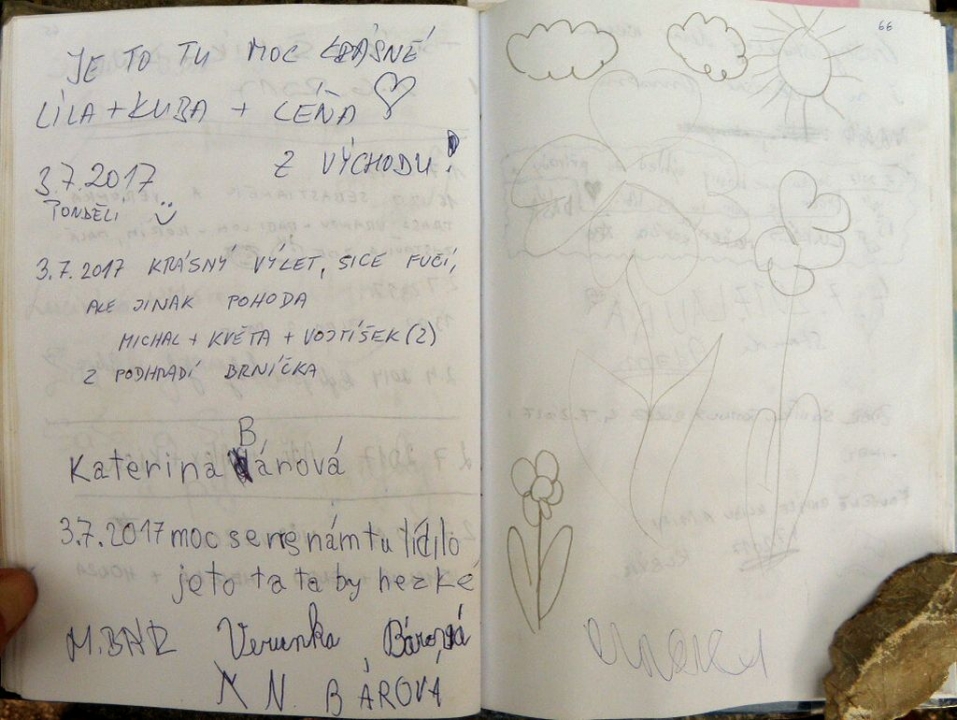 JE TO TU MOC KRÁSNÉ
LÍLA + KUBA + LEŇA
Z VÝCHODU!
3.7.2017
PONDĚLÍ
3.7.2017 KRÁSNÝ VÝLET, SICE FUČÍ,
ALE JINAK POHODA
MICHAL + KVĚTA + VOJTÍŠEK (2)
Z PODHRADÍ BRNÍČKA
B
Katerina árová
3.7.2017 moc se ng nám tu líďilo
jeto ta ta by hezké
M. BÁR Verunka Bárová
N. BÁROVÁ
66